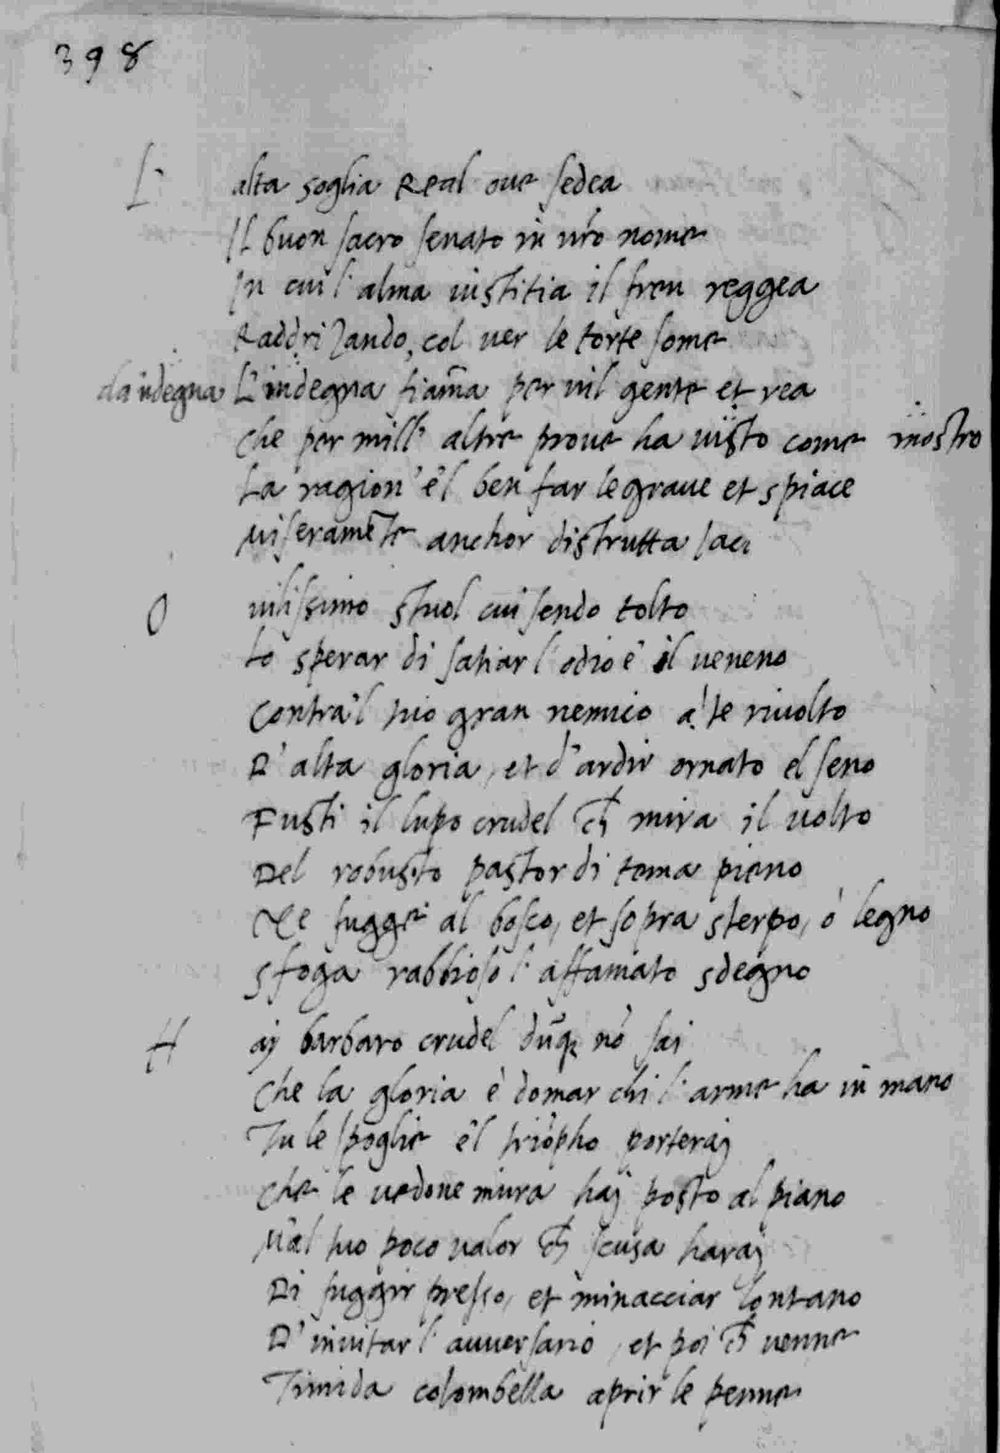 398
L' alta soglia Real oue sedea
Il buon sacro senato in vr̃o nome
In cui l'alma iustitia il fren reggea
Raddrizando, col uer le torte some
da indegna L'indegna fiam̃a per uil gente et rea
Che per mill' altre proue ha uisto come mostro
La ragion' e'l ben far le graue et spiace
Miseramẽte anchor distrutta iace
O uilissimo stuol cui sendo tolto
Lo sperar di satiar l'odio e' il ueneno
Contra'l tuo gran nemico à te riuolto
D'alta gloria, et d'ardir ornato el seno
Fusti il lupo crudel ch̃ mira il uolto
Del robusto pastor di tema pieno
Se fugge al bosco, et sopra sterpo, ò legno
Sfoga rabbioso l'affamato sdegno
H aj barbaro crudel dũq; nõ sai
Che la gloria è domar chi l'arme ha in mano
Tu le spoglie e'l triõpho porteraj
Che le uedoue mura haj posto al piano
M'al tuo poco ualor ch̃ scusa haraj
Di fuggir presso, et minacciar lontano
D'inuitar l'auuersario, et poi ch̃ uenne
Timida colombella aprir le penne